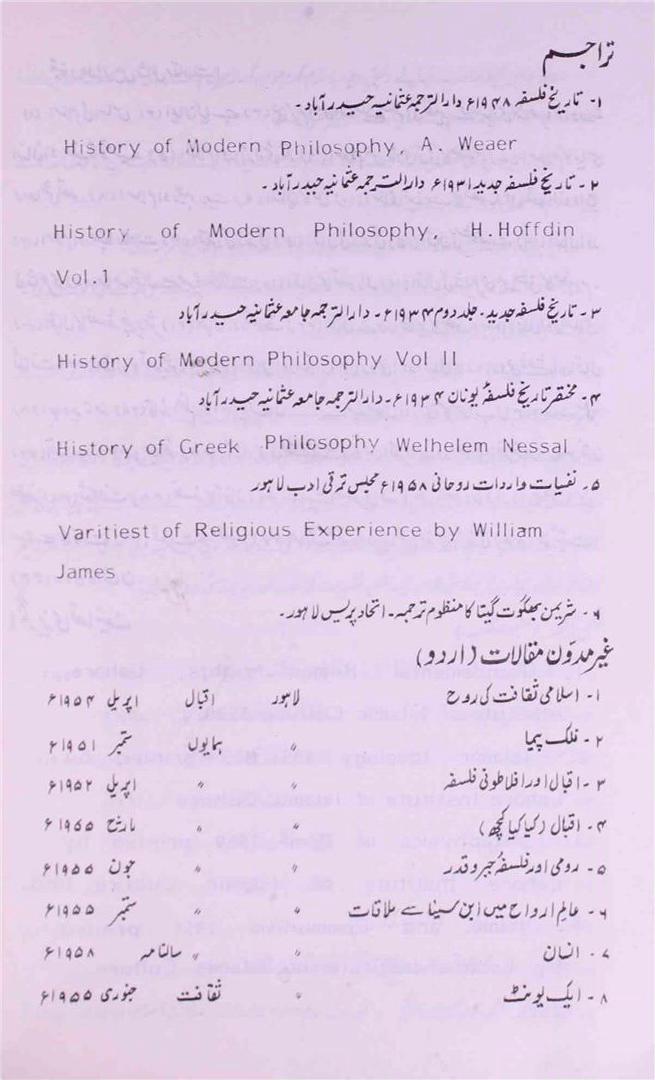 تراجم
۱- تاریخ فلسفہ ۱۹۴۸ء دارالترجمہ عثمانیہ حیدرآباد۔
History of Modern Philosophy, A. Weaer
۲- تاریخ فلسفہ جدید ۱۹۳۱ء دارالترجمہ عثمانیہ حیدرآباد۔
History of Modern Philosophy, H.Hoffdin
Vol.1
۳- تاریخ فلسفہ جدید۔ جلد دوم ۱۹۳۴ء۔ دارالترجمہ جامعہ عثمانیہ حیدرآباد
History of Modern Philosophy Vol II
۴- مختصر تاریخ فلسفۂ یونان ۱۹۳۴ء۔ دارالترجمہ جامعہ عثمانیہ حیدرآباد
History of Greek Philosophy Welhelem Nessal
۵- نفسیات واردات روحانی ۱۹۵۸ء مجلس ترقی ادب لاہور
Varitiest of Religious Experience by William
James
۶- شریمن بھگوت گیتا کا منظوم ترجمہ۔ اتحاد پریس لاہور۔
غیر مدون مقالات (اردو)
۱- اسلامی ثقافت کی روح لاہور اقبال اپریل ۱۹۵۴ء
۲- فلک پیما " ہمایوں ستمبر ۱۹۵۱ء
۳- اقبال اور افلاطونی فلسفہ " " اپریل ۱۹۵۲ء
۴- اقبال (کیا کیا کچھ) " " مارچ ۱۹۶۵ء
۵- رومی اور فلسفۂ جبر و قدر " " جون ۱۹۵۵ء
۶- عالم ارواح میں ابن سینا سے ملاقات " " ستمبر ۱۹۵۵ء
۷- انسان " " سالنامہ ۱۹۵۸ء
۸- ایک یونٹ " ثقافت جنوری ۱۹۵۵ء